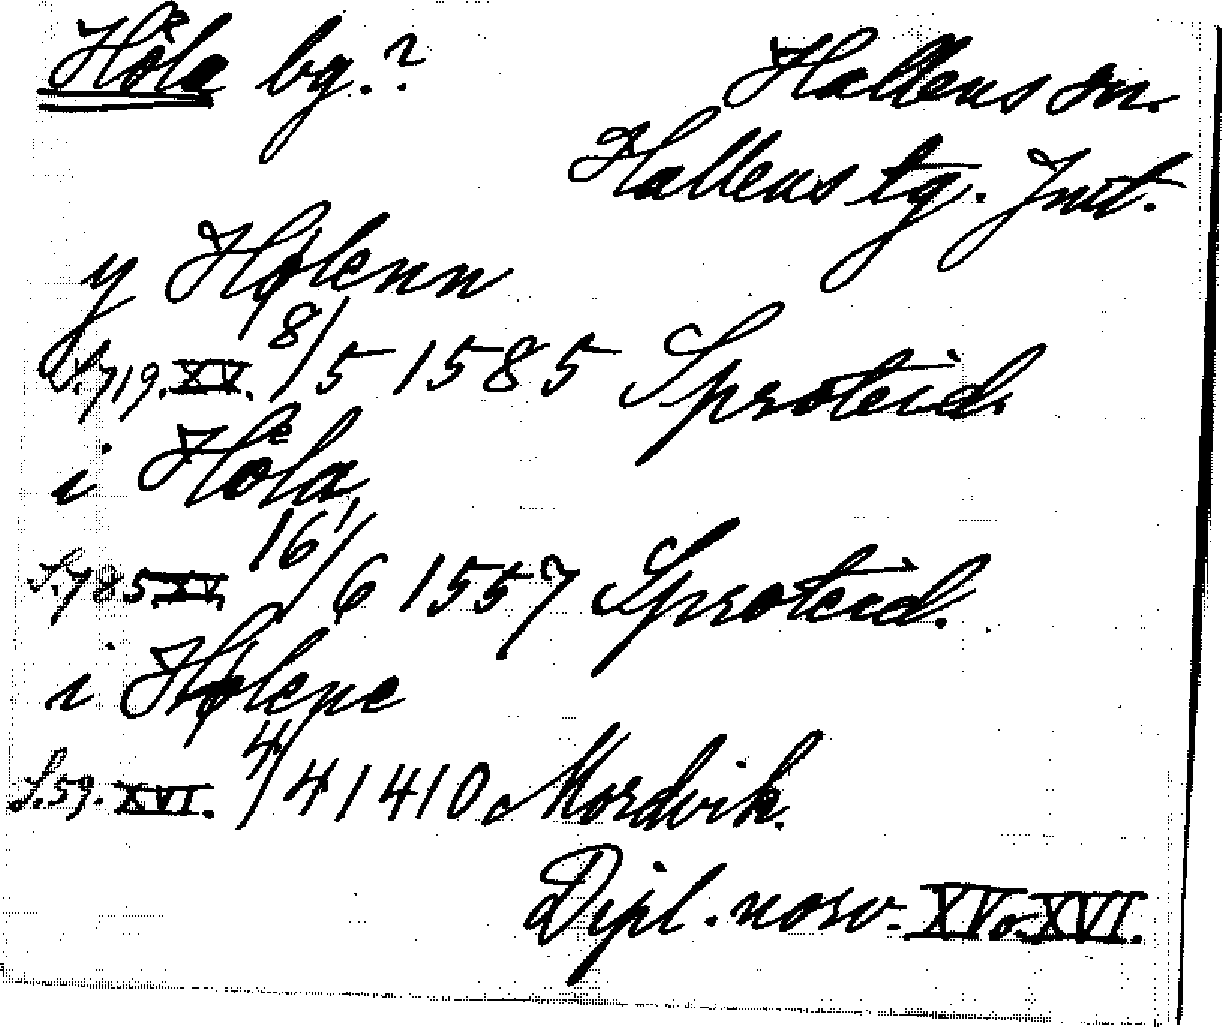 Hoͤla bg.?
Hallens sn.
Hallens tg. Jmt.
y Hølenn
S. 719. XV. 18/5 1585 Sproteid.
i Hoͤla
S. 785 XV. 16/6 1557 Sproteid.
i Hølene
S. 59. XVI. 4/4 1410 Mordvik.
Dipl. norv. XV o. XVI.